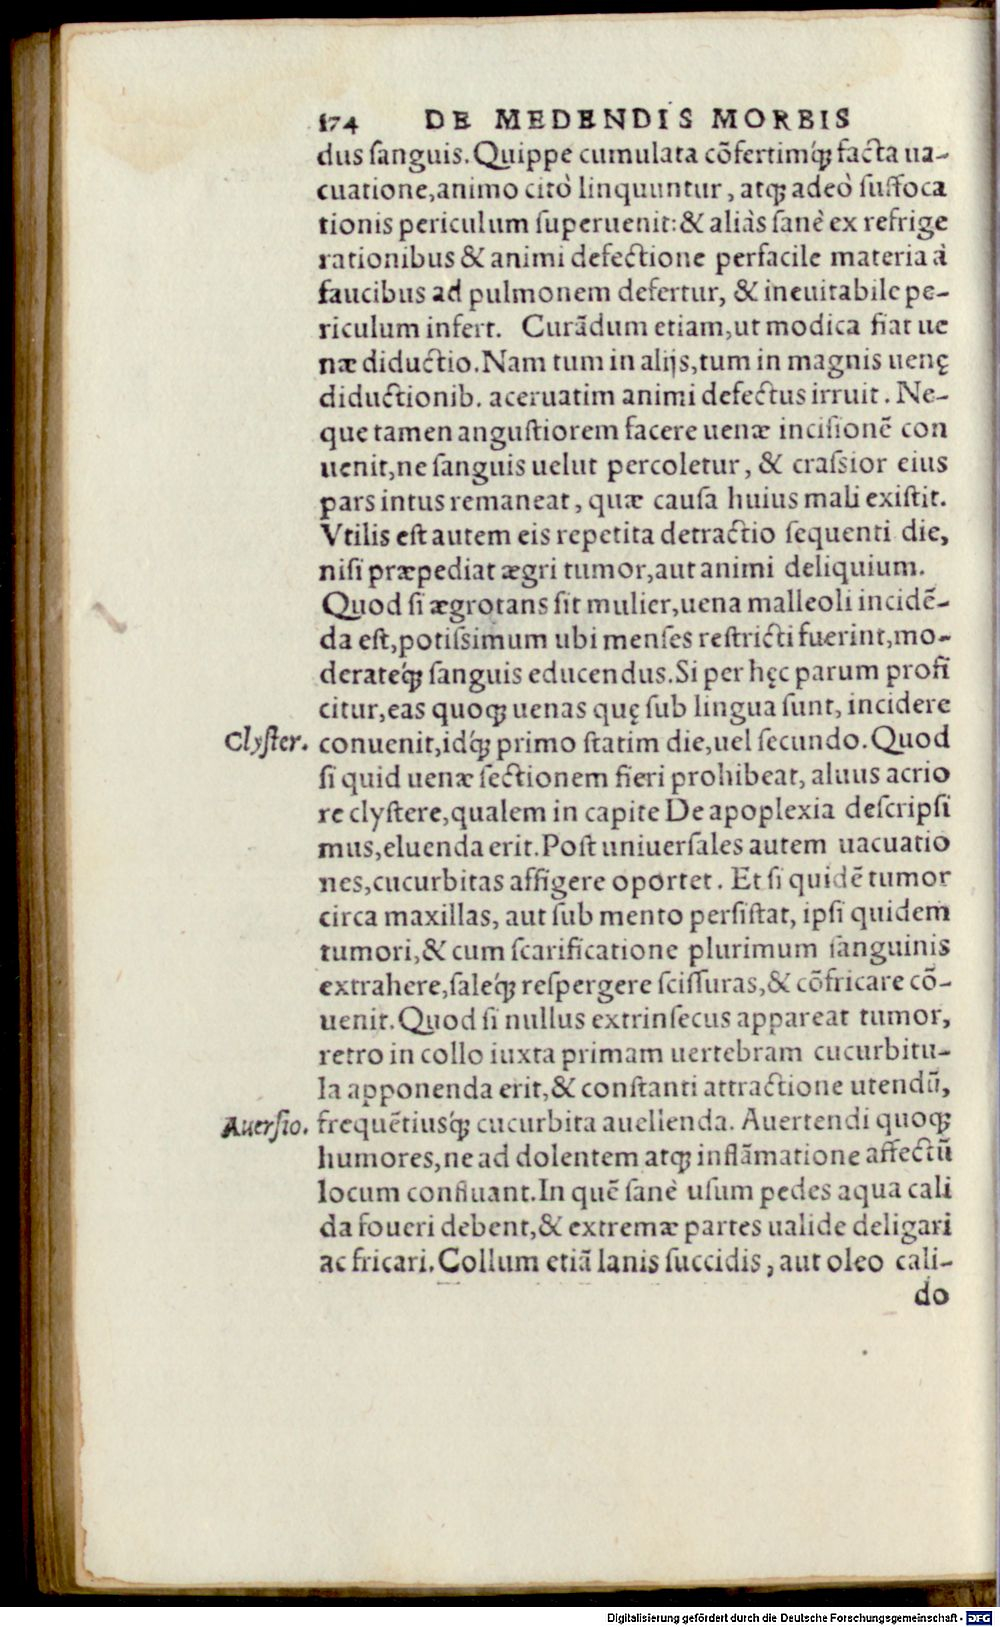 174 DE MEDENDIS MORBIS
dus ſanguis. Quippe cumulata cõfertimq́ꝫ facta ua-
cuatione, animo citò linquuntur, atqꝫ adeò ſuffoca
tionis periculum ſuperuenit: & aliàs ſanè ex refrige
rationibus & animi defectione perfacile materia à
faucibus ad pulmonem defertur, & ineuitabile pe-
riculum infert. Curãdum etiam, ut modica fiat ue
næ diductio. Nam tum in alijs, tum in magnis uenę
diductionib. aceruatim animi defectus irruit. Ne-
que tamen anguſtiorem facere uenæ inciſionẽ con
uenit, ne ſanguis uelut percoletur, & craſsior eius
pars intus remaneat, quæ cauſa huius mali exiſtit.
Vtilis eſt autem eis repetita detractio ſequenti die,
niſi præpediat ægri tumor, aut animi deliquium.
Quod ſi ægrotans ſit mulier, uena malleoli incidẽ-
da eſt, potiſsimum ubi menſes reſtricti fuerint, mo-
derateq́ꝫ ſanguis educendus. Si per hęc parum profi
citur, eas quoqꝫ uenas quę ſub lingua ſunt, incidere
Clyſter. conuenit, idq́ꝫ primo ſtatim die, uel ſecundo. Quod
ſi quid uenæ ſectionem fieri prohibeat, aluus acrio
re clyſtere, qualem in capite De apoplexia deſcripſi
mus, eluenda erit. Poſt uniuerſales autem uacuatio
nes, cucurbitas affigere oportet. Et ſi quidẽ tumor
circa maxillas, aut ſub mento perſiſtat, ipſi quidem
tumori, & cum ſcarificatione plurimum ſanguinis
extrahere, ſaleq́ꝫ reſpergere ſciſſuras, & cõfricare cõ-
uenit. Quod ſi nullus extrinſecus appareat tumor,
retro in collo iuxta primam uertebram cucurbitu-
la apponenda erit, & conſtanti attractione utendũ,
Auerſio. frequẽtiusq́ꝫ cucurbita auellenda. Auertendi quoqꝫ
humores, ne ad dolentem atqꝫ inflãmatione affectũ
locum confluant. In quẽ ſanè uſum pedes aqua cali
da foueri debent, & extremæ partes ualide deligari
ac fricari. Collum etiã lanis ſuccidis, aut oleo cali-
do
Digitalisierung gefördert durch die Deutsche Forschungsgemeinschaft - DFG